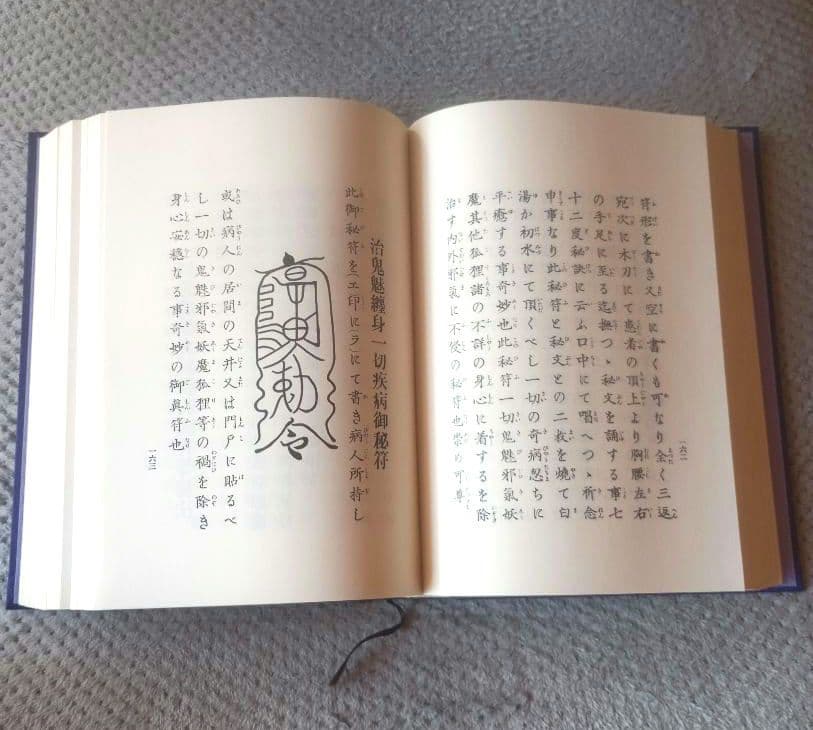 符形を書き又空に書くも可なり全く三返
宛次に木刀にて患者の頂上より胸腰左右
の手足に至る迄撫つゝ秘文を誦する事七
十二度秘訣に云ふ口中にて唱へつゝ祈念
申事なり此秘符と秘文との二枚を燒て白
湯か初水にて頂くべし一切の奇病忽ちに
平癒する事奇妙也此秘符一切鬼魅邪氣妖
魔其他狐狸諸の不詳の身心に着するを除
治す内外邪氣に不侵の秘符也崇め可尊
一六二
治鬼魅纏身一切疾病御秘符
此御秘符を(エ印に(ラ)にて書き病人所持し
勅令
或は病人の居間の天井又は門戸に貼るべ
し一切の鬼魅邪氣妖魔狐狸等の禍を除き
身心安穩なる事奇妙の御眞符也
一六三